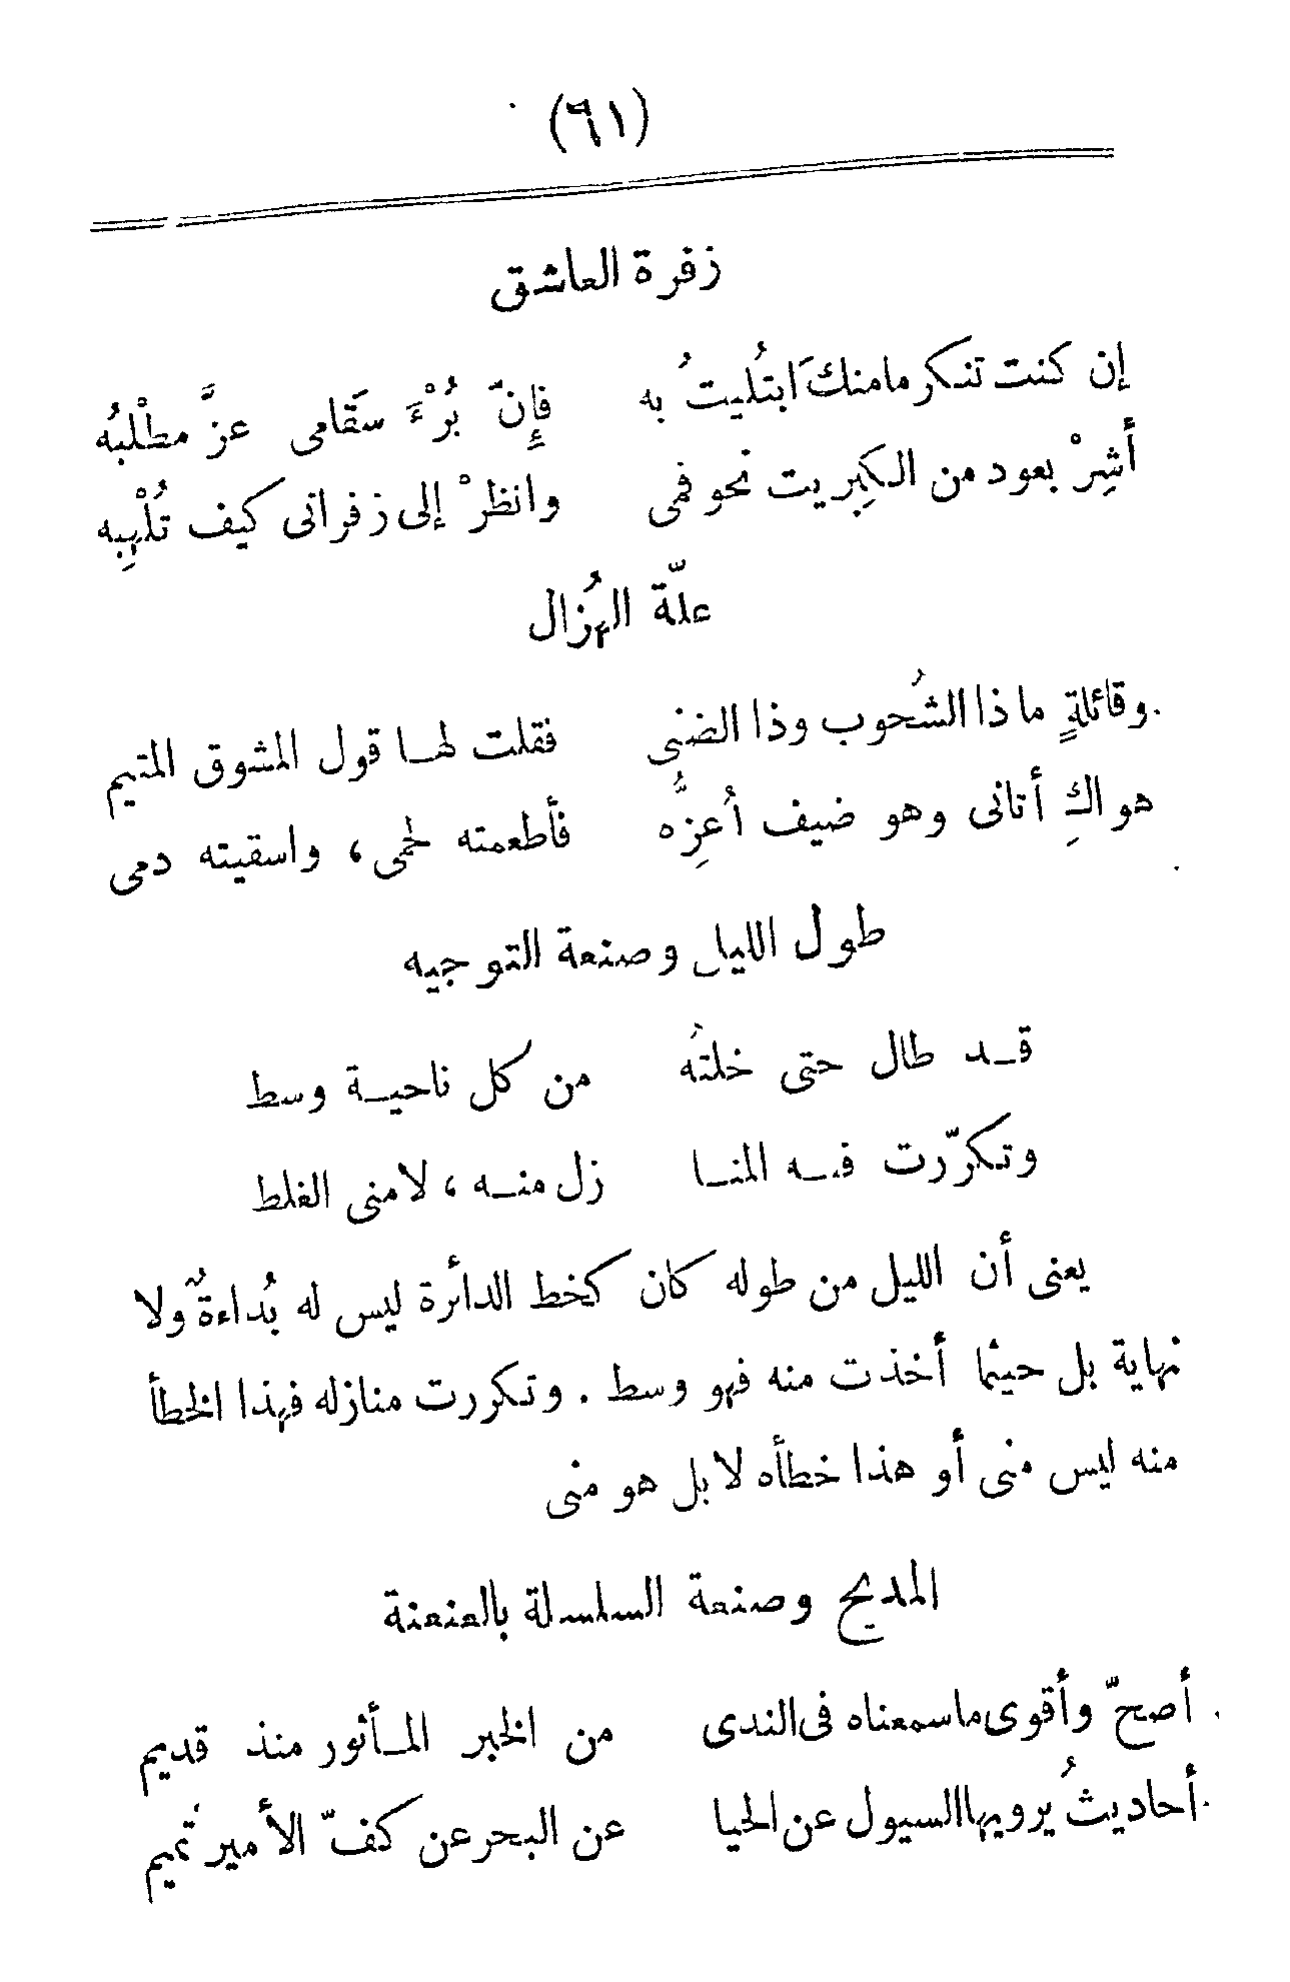 (٦١)
زفرة العاشق
إن كنت تنكر مامنكَ ابتُليتُ به فإِنّ بُرْءَ سقَامى عزَّ مطْلبُه
أشِرْ بعود من الكِبريت نحو فمى وانظرْ إلى زفراتى كيف تُلْهِبه
علّة الهُزال
وقائلةٍ ماذا الشُحوب وذا الضنى فقلت لهـا قول المشوق المتيم
هواكِ أتانى وهو ضيف أُعِزُّه فأطعمته لحمى ، واسقيته دمى
طول الليل وصنعة التوجيه
قـد طال حتى خلتُه من كل ناحيـة وسط
وتكرّرت فيـه المنـا زل منـه ، لامنى الغلط
يعنى أن الليل من طوله كان كخط الدائرة ليس له بُداءةٌ ولا
نهاية بل حيثما أخذت منه فهو وسط . وتكررت منازله فهذا الخطأ
منه ليس منى أو هذا خطأه لا بل هو منى
المديح وصنعة السلسلة بالعنعنة
أصحّ وأقوى ماسمعناه فى الندى من الخبر المـأثور منذ قديم
أحاديثُ يرويها السيول عن الحيا عن البحر عن كفّ الأمير تميم